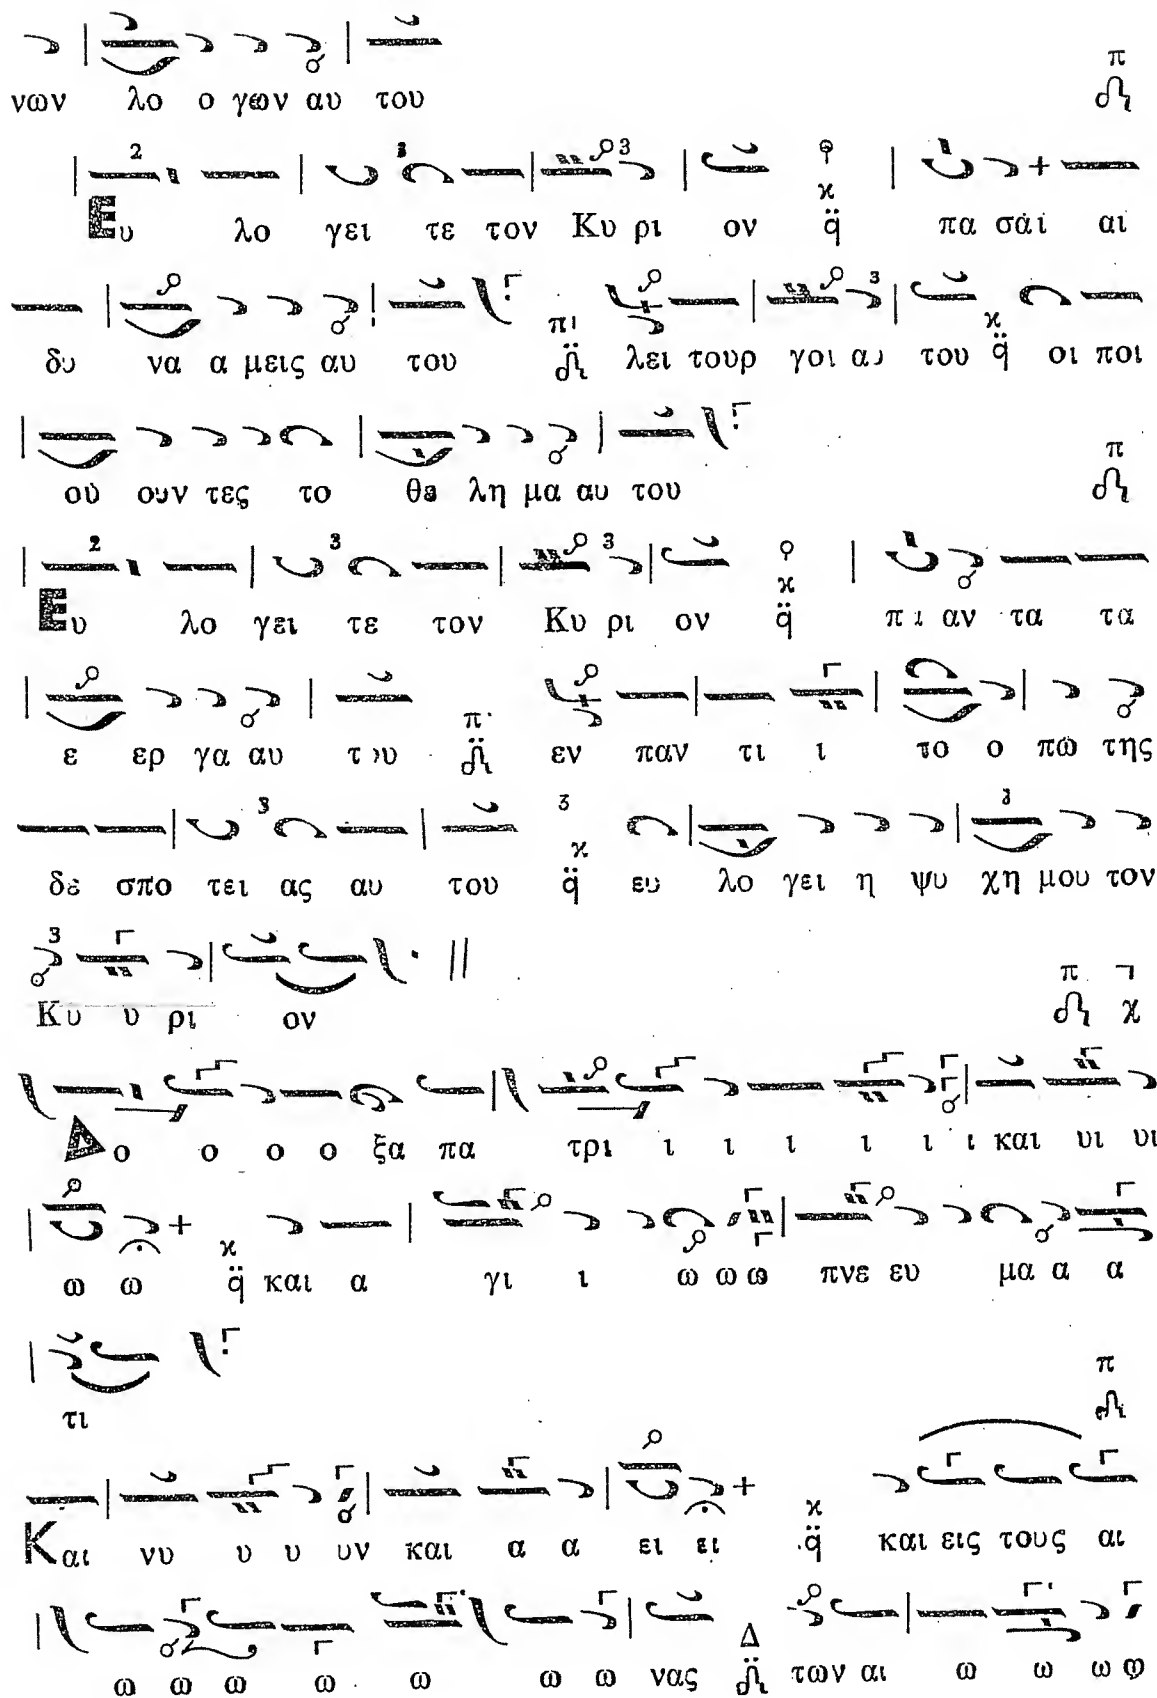 νων λο ο γων αυ του
Ευ λο γει τε τον Κυ ρι ον πα σαι αι
δυ να α μεις αυ του λει τουρ γοι αυ του οι ποι
ού ουν τες το θε λη μα αυ του
Ευ λο γει τε τον Κυ ρι ον αν τα τα
ε ερ γα αυ του εν παν τι ι το ο πω της
δε σπο τει ας αυ του ευ λο γει η ψυ χη μου τον
Κυ υ ρι ον
Δο ο ο ο ξα πα τρι ι ι ι ι ι ι και υι υι
ω ω και α γι ι ω ω ω πνε ευ μα α α
τι
Και νυ υ υ υν και α α ει ει και εις τους αι
ω ω ω ω ω ω ω νας των αι ω ω ω ω